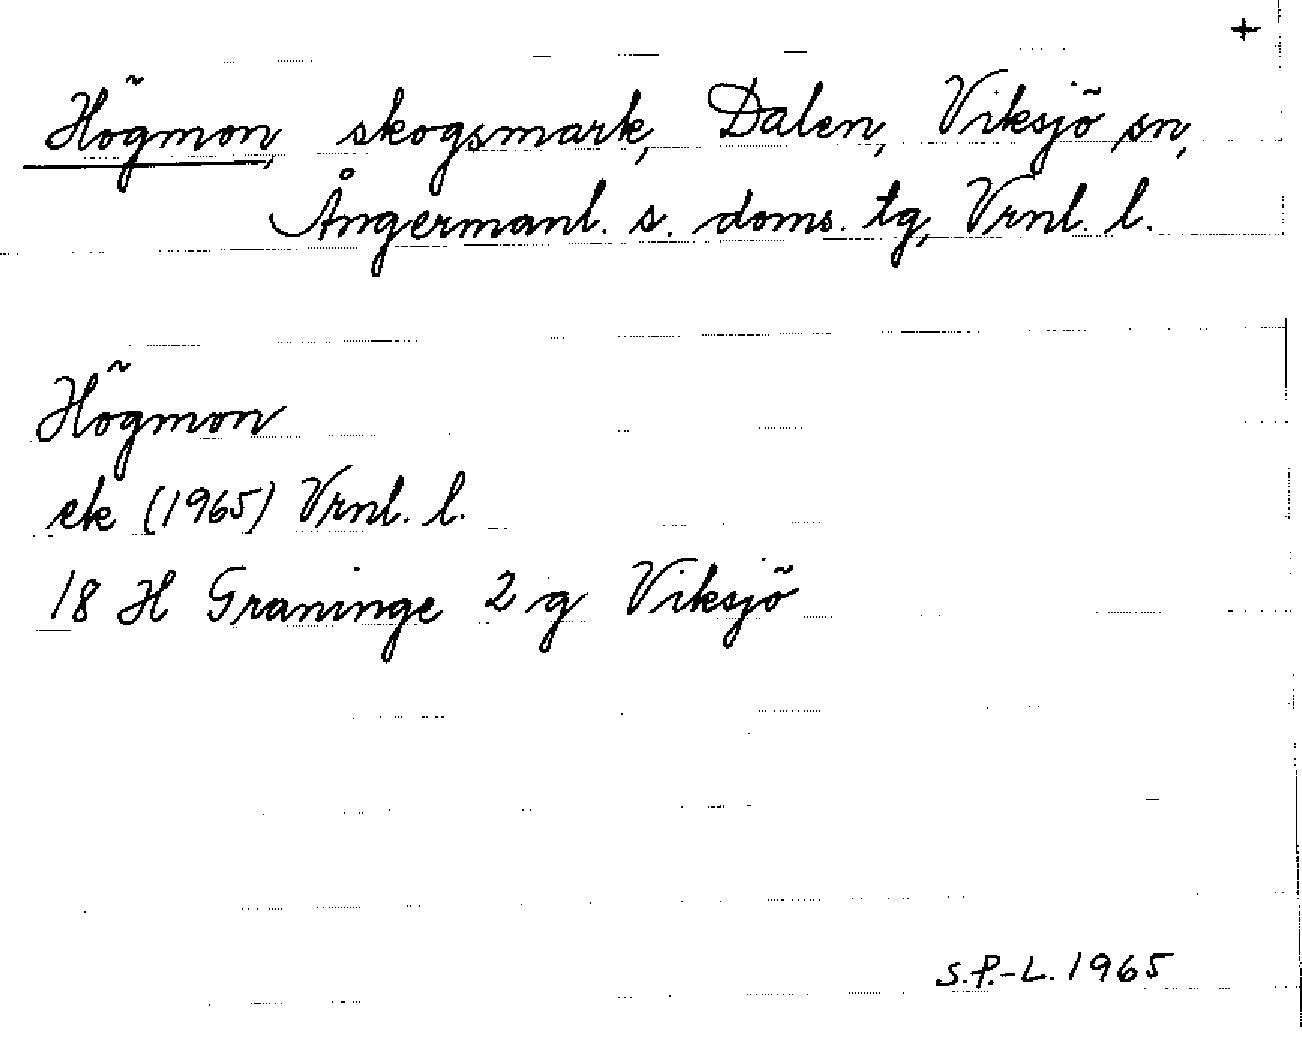 +
Högmon, skogsmark, Dalen, Viksjö sn,
Ångermanl. s. doms. tg, Vrnl. l.
Högmon
ek (1965) Vrnl. l.
18 H Graninge 2 g Viksjö
S.P.-L. 1965